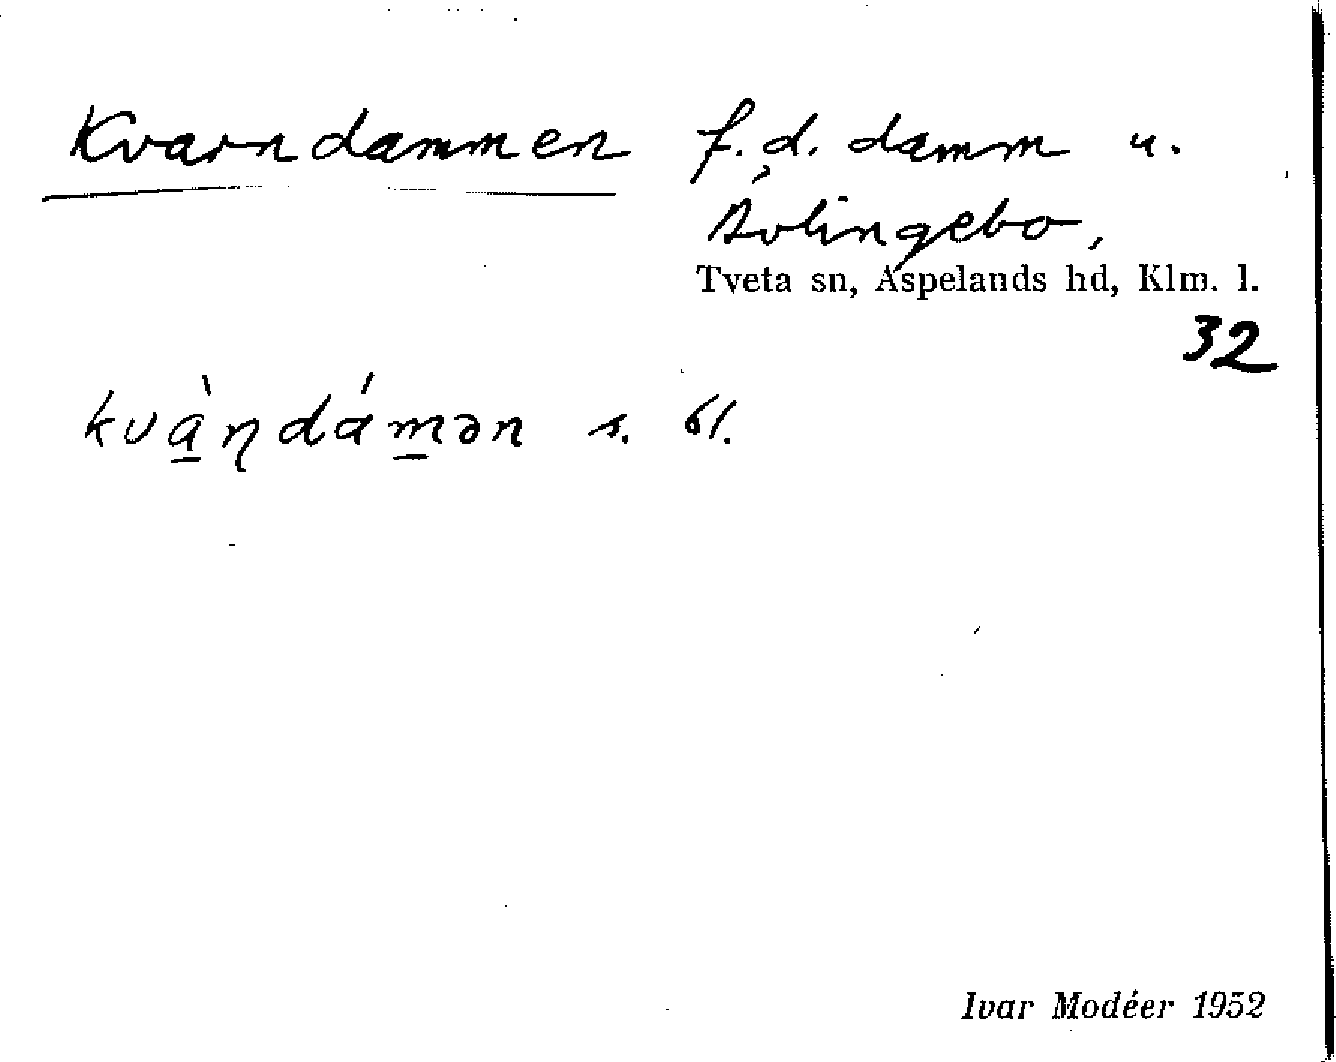 Kvarndammen f.d. damm u.
Ävlingebo,
Tveta sn, Aspelands hd, Klm. l.
32
kvàɳdámən s. bl.
Ivar Modéer 1952